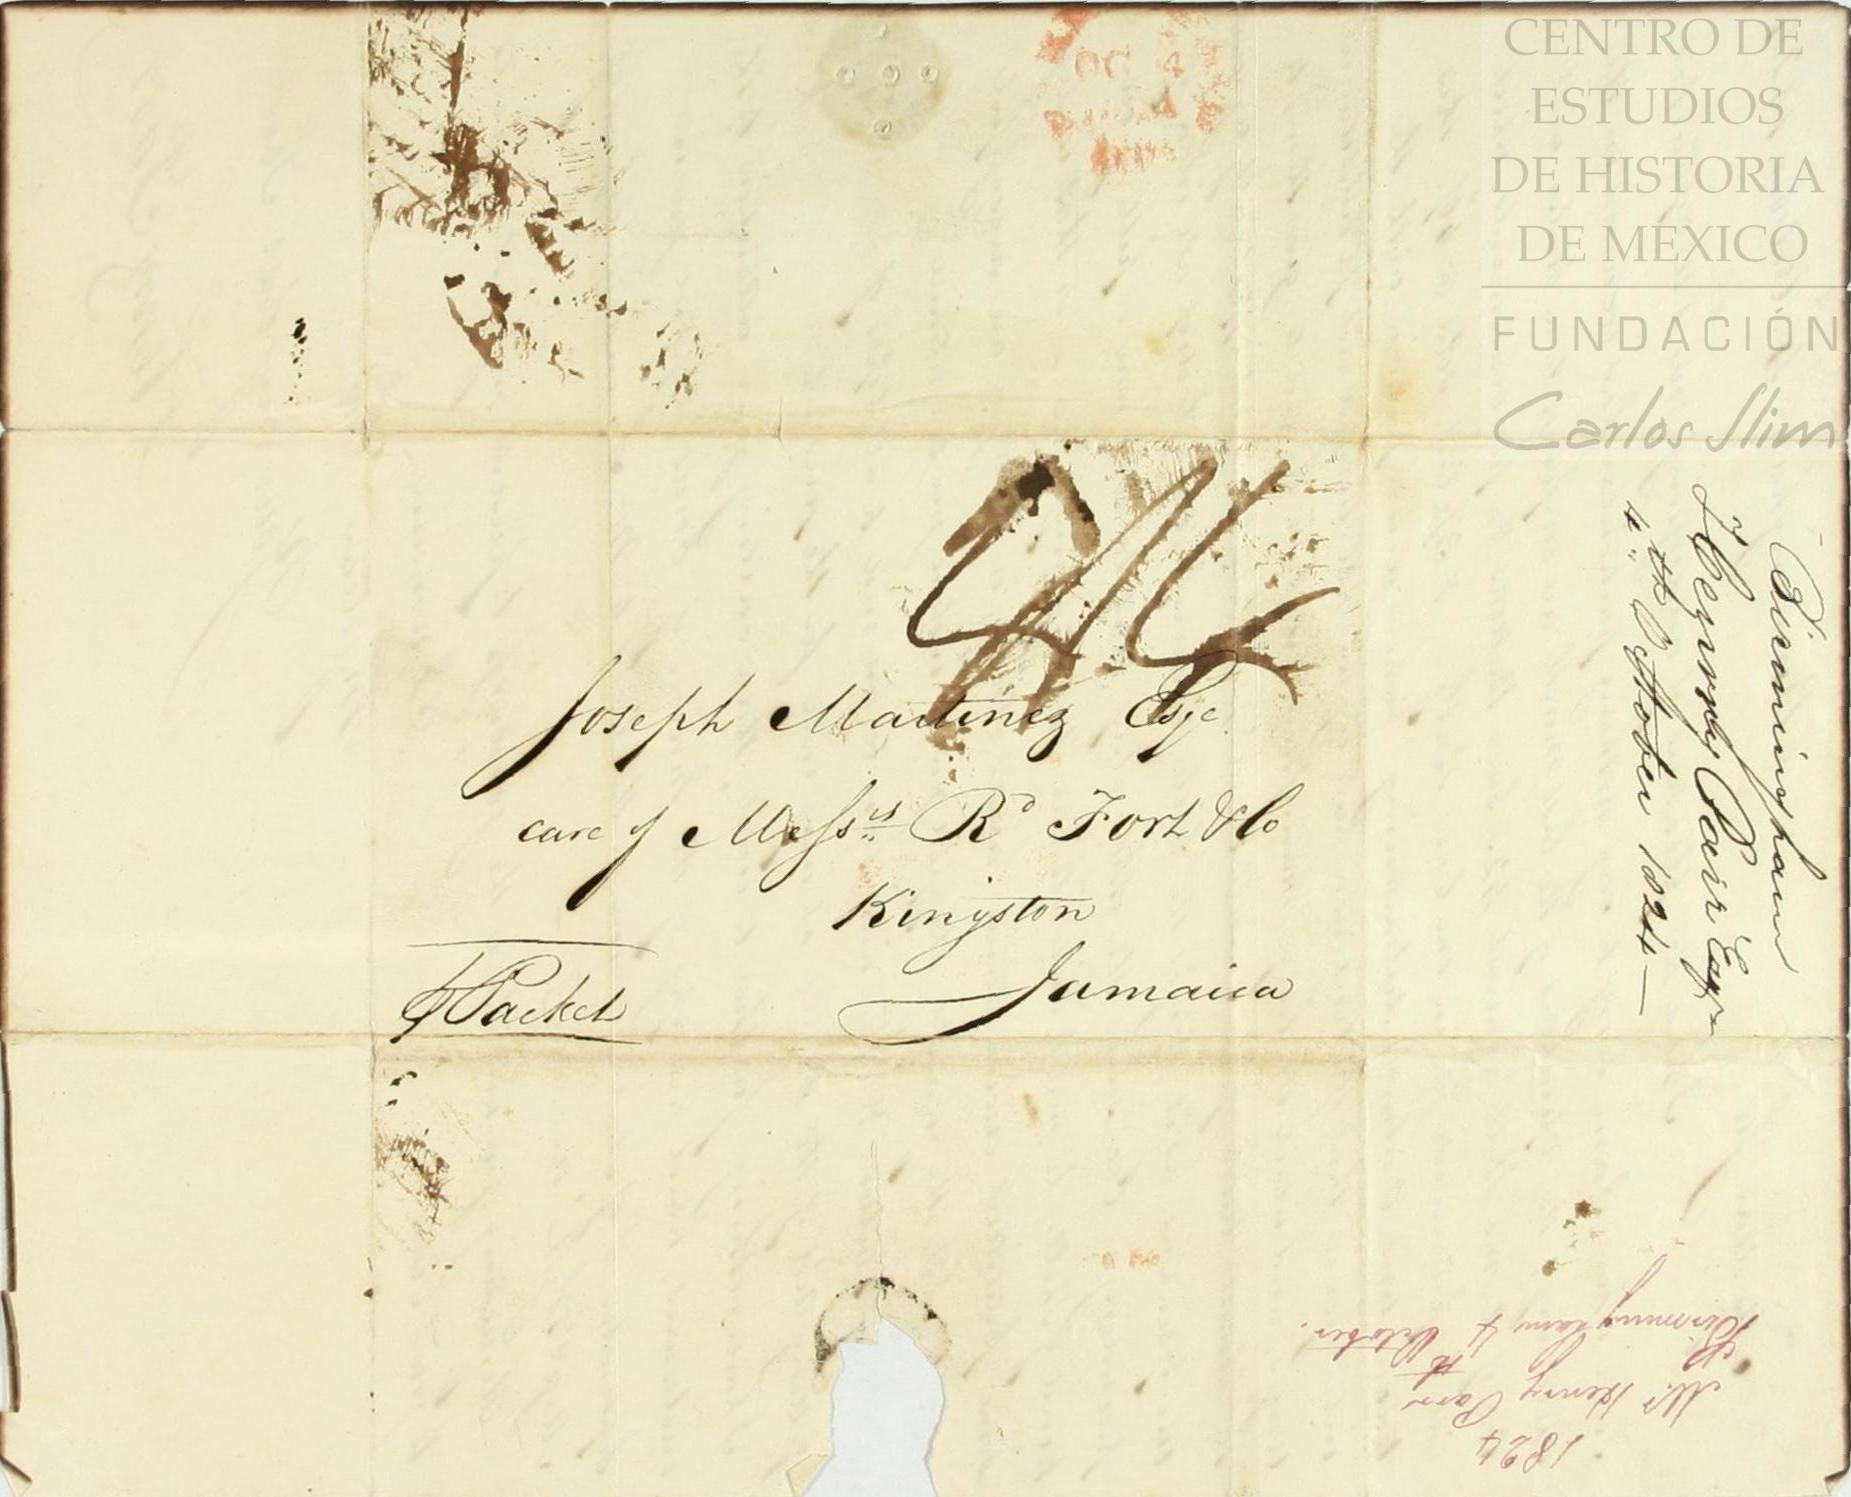 CENTRO DE
ESTUDIOS
DE HISTORIA
DE MÉXICO
FUNDACIÓN
Carlos Slim
OC 4
Joseph Martinez Esqe
care of Messrs Rd Fort & Co
Kingston
Jamaica
Packet
Birmingham
Henry Parr Esqr
4th October 1824
1824
Mr Henry Parr
Birmingham 4th October.